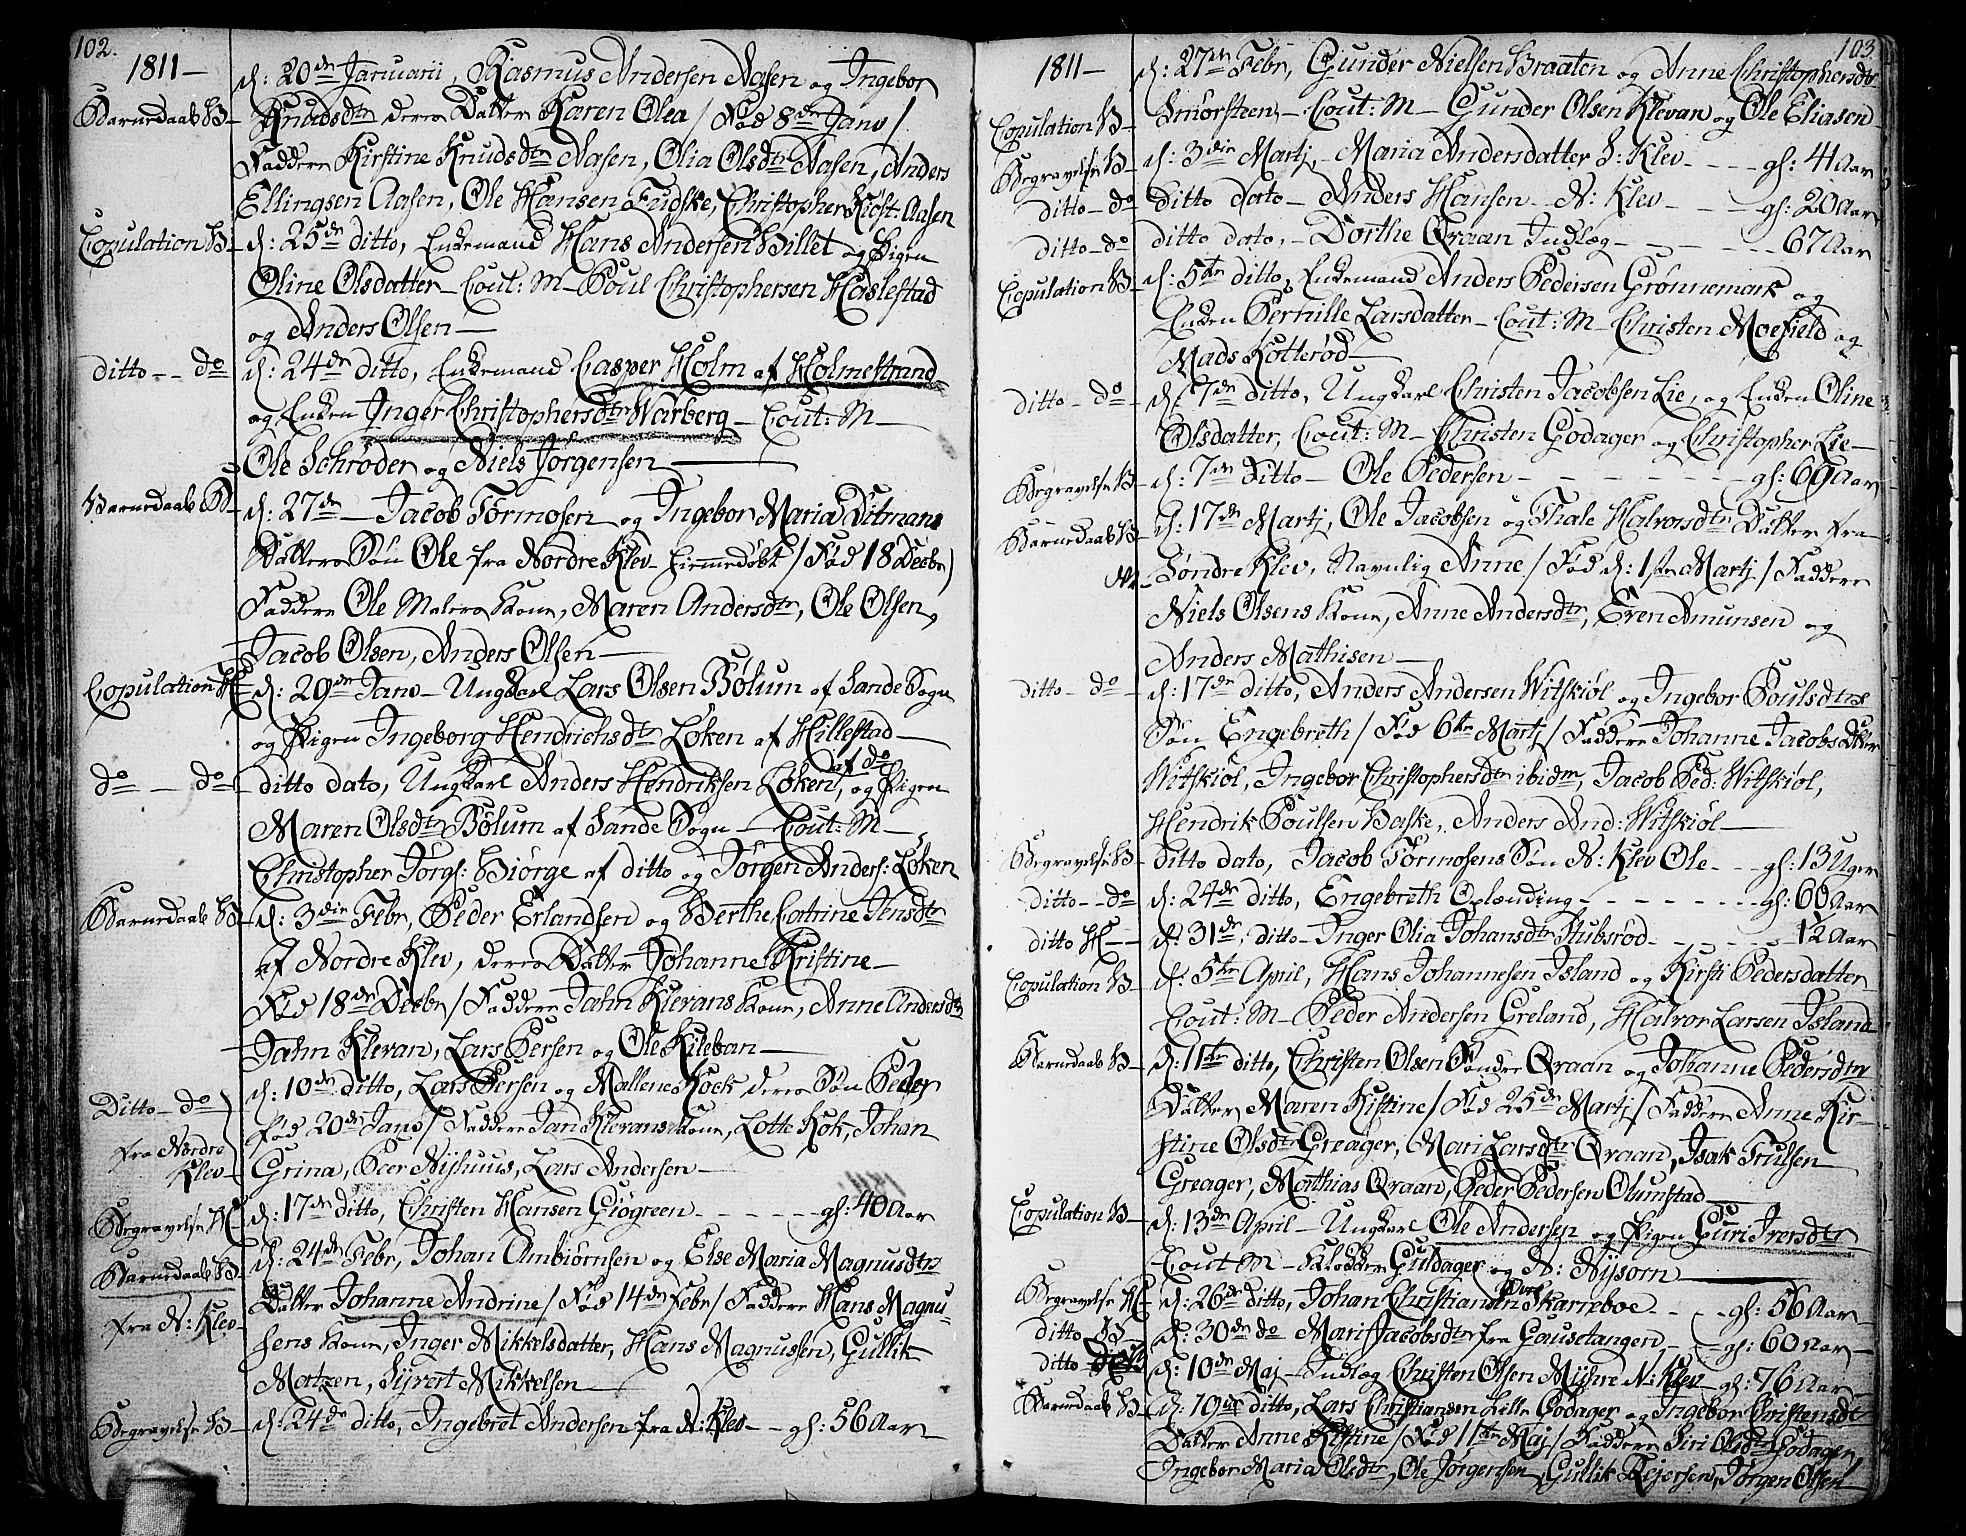 102.
1811 –
d: 20de Januarii, Rasmus Andersen Aasen og Ingebor
Barnedaab B – Knudsdtr deres Datter Karen Olea / Fød 8de Janv /
Faddere Kirstine Knudsdtr Aasen, Olia Olsdtr Aasen, Anders
Ellingsen Aasen, Ole Hansen Fudske, Christopher Krist: Aasen
Copulation B – d: 25de ditto, Enkemand Hans Andersen Billet og Pigen
Oline Olsdatter – Cout: M – Poul Christophersen Haslestad
og Anders Olsen –
ditto – – do d: 24de ditto, Enkemand Casper Holm af Holmestrand
og Enken Inger Christophersdtr Warberg – Cout: M –
Ole Schrøder og Niels Jørgensen –
Barnedaab B – d: 27de – Jacob Tormosen og Ingebor Maria Ditmans
Datters Søn Ole fra Nordre Klev hiemmedøbt / Fød 18 Decbr /
Faddere Ole Malers Kone, Maren Andersdtr, Ole Olsen,
Jacob Olsen, Anders Olsen –
Copulation H – d: 29de Janv – Ungkarl Lars Olsen Bølum af Sande Sogn
og Pigen Ingeborg Hendrichsdtr Løken af Hillestad –
do – do ditto dato, Ungkarl Anders Hendriksen Løken af do, og Pigen
Maren Olsdtr Bølum af Sande Sogn – Cout: M –
Christopher Jørgs: Biørge af ditto og Jørgen Anders: Løken
Barnedaab B – d: 3die Febr, Peder Erlandsen og Berthe Catrine Jensdtr
af Nordre Klev, deres Datter Johanne Kristine –
Fød 18de Decbr / Faddere Jahn Klevans Kone, Anne Andersdtr
Jahn Klevan, Lars Persen og Ole Kileban –
Ditto – do d: 10de ditto, Lars Persen og Mallene Kock deres Søn Peder
fra Nordre fød 20de Janv / Faddere Jan Klevans Kone, Lotte Kok, Johan
Klev – Grina, Peer Nyhuus, Lars Andersen –
Begravelse H d: 17de ditto, Christen Hansen Giøgreen – – – – gl: 40 Aar
Barnedaab B – d: 24de Febr, Johan Ambiørnsen og Else Maria Magnusdtrs
fra N: Klev – Datter Johanne Andrine / Fød 14de Febr / Faddere Hans Magnu-
sens Kone, Inger Mikkelsdatter, Hans Magnussen, Gullik
Matzen, Syvert Mikkelsen –
Begravelse B – d: 24de ditto, Ingebret Andersen fra N: Klev – – gl: 56 Aar
103
1811 –
d: 27de Febr, Gunder Nielsen Braaten og Anne Christophersdtr
Copulation B – Smørsteen – Cout: M – Gunder Olsen Klevan og Ole Eliasen
Begravelse B – d: 3die Martj, Maria Andersdatter S: Klev – – – gl: 41 Aar
ditto – do ditto dato – Anders Hansen – N: Klev – – – gl: 20 Aar
ditto – do ditto dato, – Dorthe Qraan Indlæg – – – – 67 Aar
Copulation B – d: 5te ditto, Enkemand Anders Pedersen Grønnemark og
Enken Pernille Larsdatter – Cout: M – Christen Moefield og
Mads Kotterød –
ditto – do – d: 7de ditto, Ungkarl Christen Jacobsen Lie, og Enken Oline
Olsdatter, Cout: M – Christen Godager og Christopher Lie –
Begravelse B – d: 7de Ditto – Ole Pedersen – – – – – gl: 69 Aar
Barnedaab B – d: 17de Martj, Ole Jacobsen og Thale Halvorsdtr Datter fra
Søndre Klev, Navnlig Anne / Fød d: 1ste Martj / Faddere
Niels Olsens Kone, Anne Andersdtr, Even Amunsen og
Anders Mathisen –
ditto – do – d: 17de ditto, Anders Andersen Witskiøl og Ingebor Poulsdtrs
Søn Engebreth / Fød 6te Martj / Faddere Johanne Jacobs Datter
Witskiøl, Ingebor Christophersdtr ibidm, Jacob Ped: Witskiøl,
Hendrik Poulsen Baske, Anders And: Witskiøl –
Begravelse B – ditto dato, Jacob Tormosens Søn N: Klev Ole – – gl: 13 Uger
ditto – – do d: 24de ditto, Engebreth Oplænding – – – – – gl: 60 Aar
ditto H – – d: 31de, ditto – Inger Olia Johansdtr Stubsrød – – – – – 1/2 Aar
Copulation B – d: 5te April, Hans Johannesen Island og Kirsti Pedersdatter
Cout: M – Peder Andersen Greland, Halvor Larsen Island
Barnedaab B – d: 11te ditto, Christen Olsen Søndre Qraan og Johanne Pedersdtr
Datter Maren Kistine / Fød 25de Martj / Faddere Anne Kir-
stine Olsdtr Greager, Mari Larsdtr Qraan, Isak Trulsen
Greager, Mathias Qraan, Peder Pedersen Olumstad –
Copulation B – d: 13de April – Ungkarl Ole Andersen og Pigen Guri Iversdtr
Cout M – Klokker Guldager og N: Nysom –
Begravelse H – d: 26de ditto, Johan Christiansen Skarreboe – – – gl: 56 Aar
ditto B – d: 30de do Mari Jacobsdtr fra Gausetangen, – – gl: 60 Aar –
ditto d: 10de Maj – Indlæg Christen Olsen Myhre N: Klev – gl: 76 Aar
Barnedaab B – d: 19de ditto, Lars Christiansen Lille Godager og Ingebor Christensdtr
Datter Anne Kistine / Fød 11te Maj / Faddere Siri Olsdtr Godager
Ingebor Maria Olsdtr, Ole Jørgensen, Gullik Rejersen, Jørgen Olsen